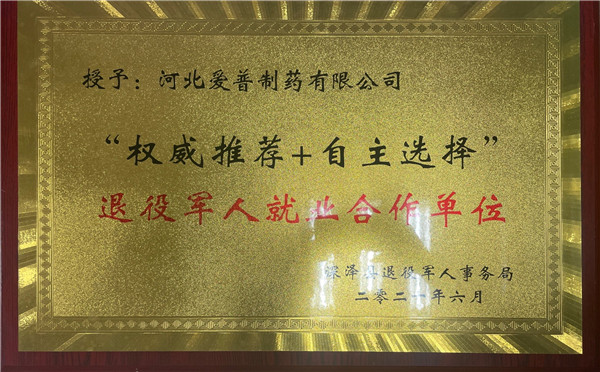 授予：河北爱普制药有限公司
“权威推荐+自主选择”
退役军人就业合作单位
深泽县退役军人事务局
二零二一年六月